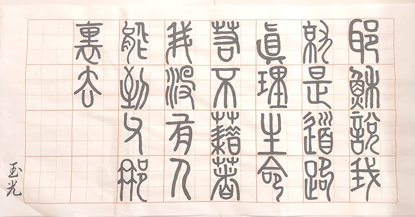 耶穌說我
就是道路
眞理生命
若不藉著
我沒有人
能到父那
裏去
玉光